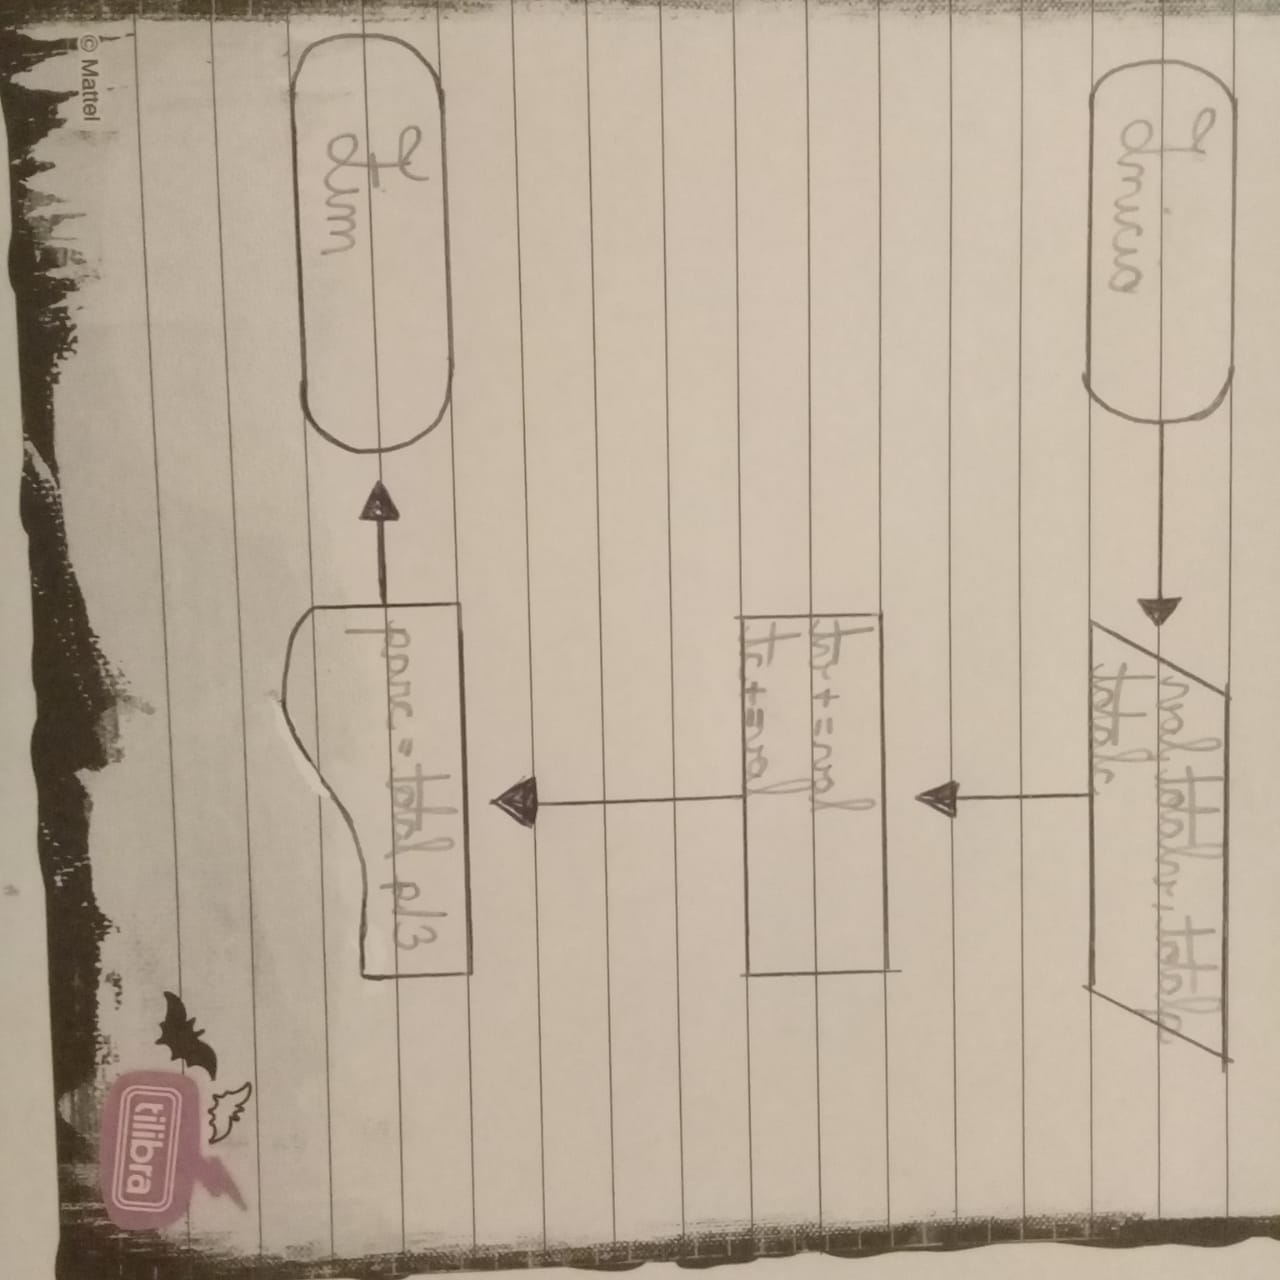 Início
val, totalv, totalp
totalc
tv+=val
tc+=val
parc = total p/3
Fim
© Mattel
tilibra